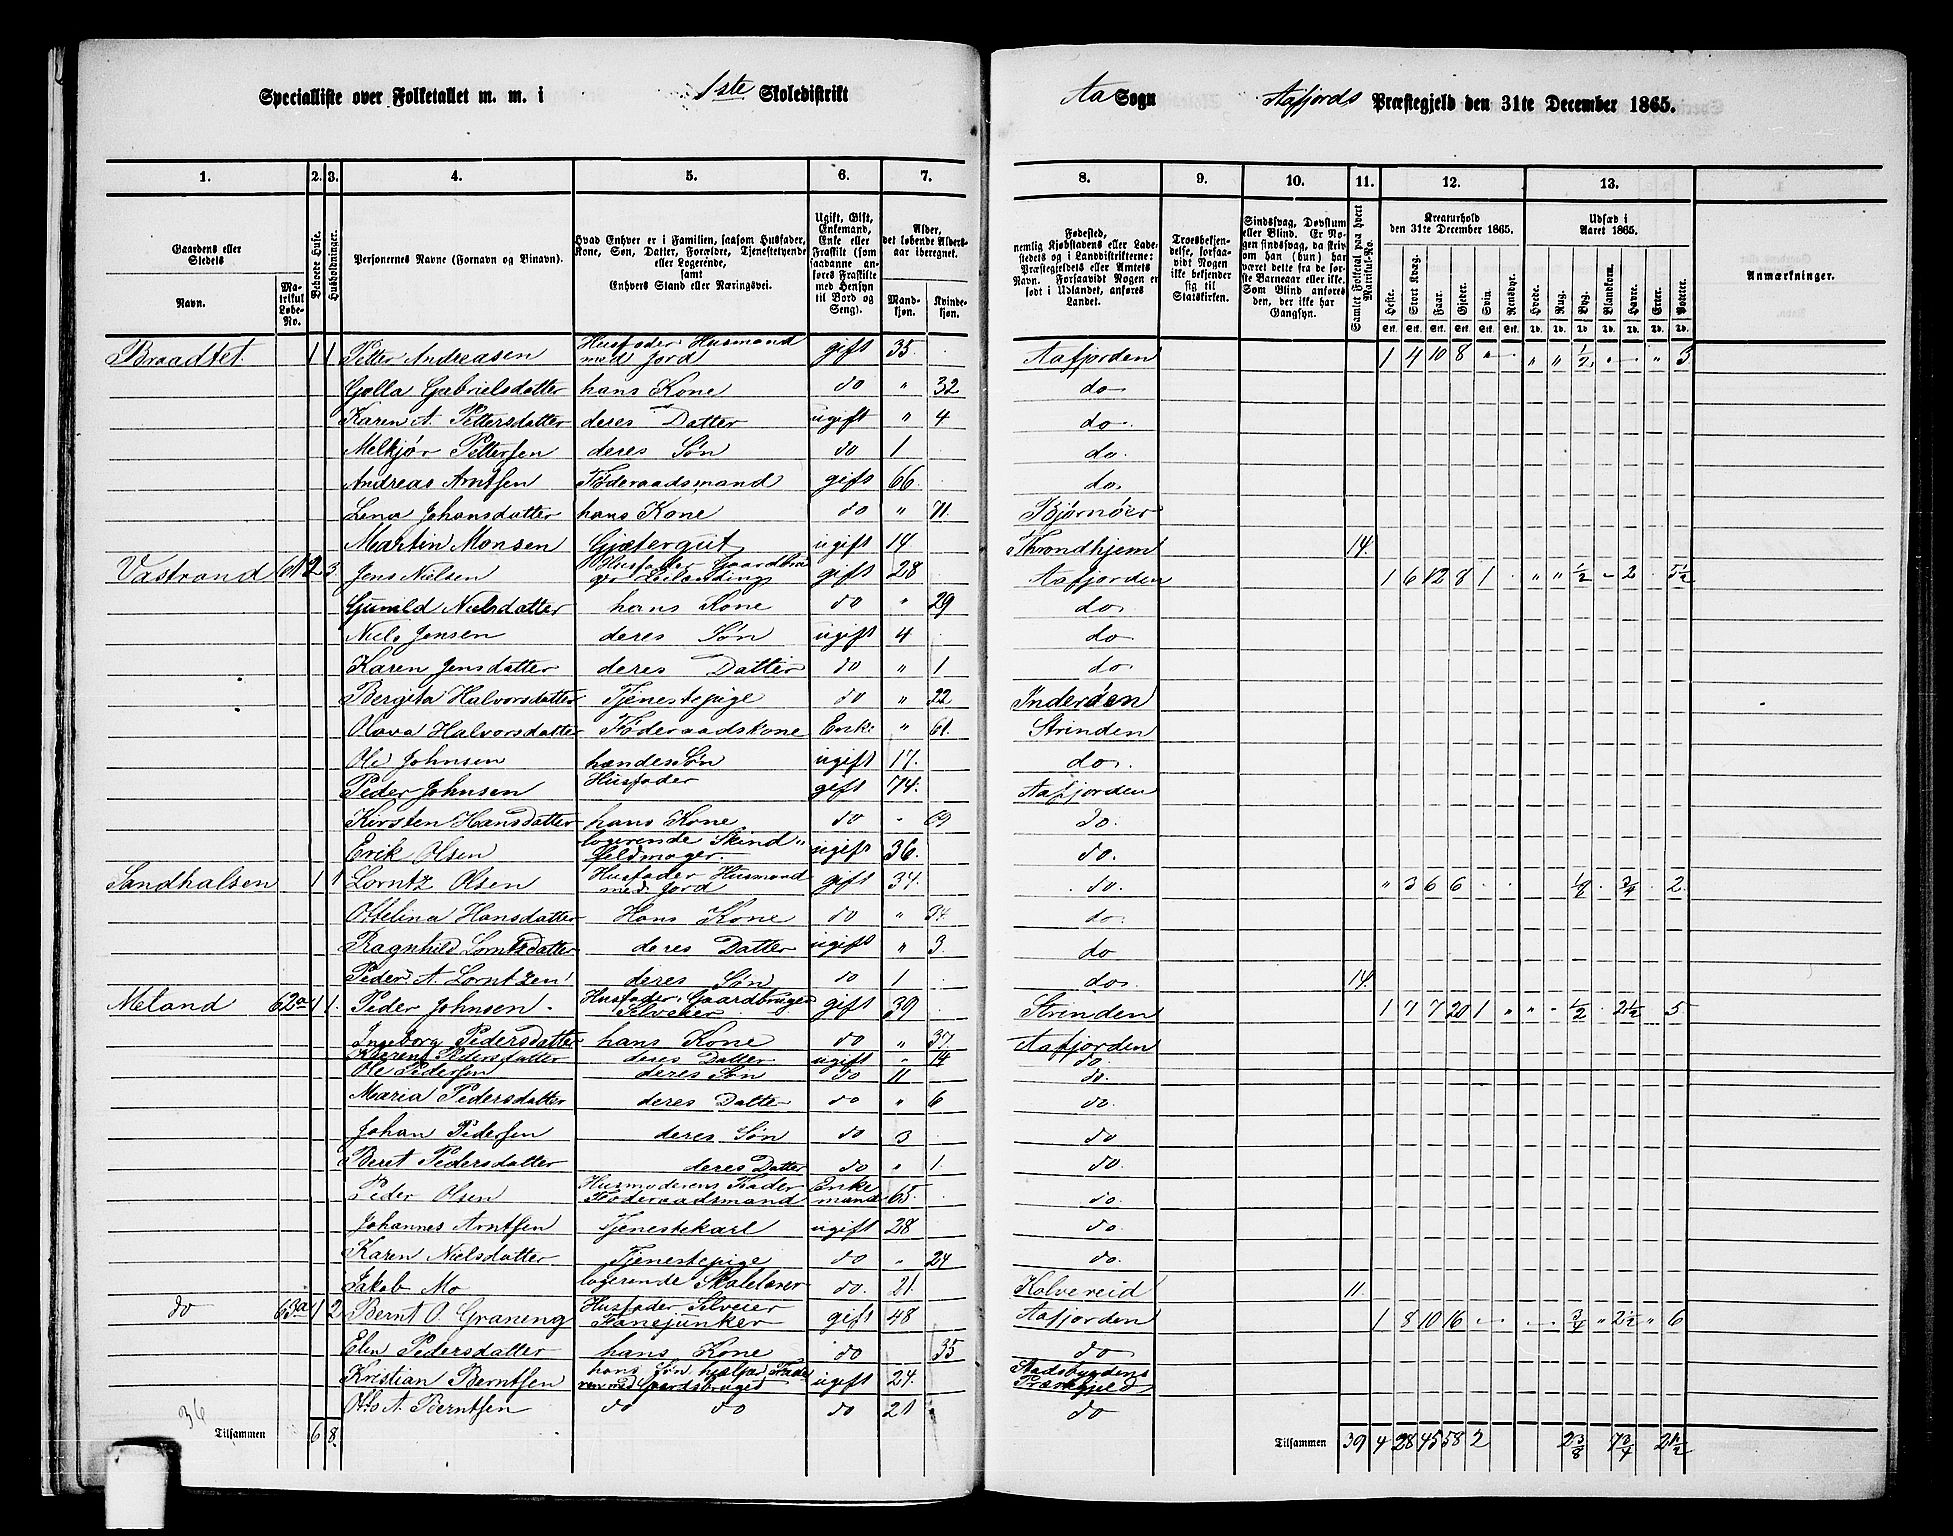 Specialliste over Folketallet m. m. i 1ste Skoledistrikt Aa Sogn Aafjords Præstegjeld den 31te December 1865.
1. 2. 3. 4. 5. 6. 7. 8. 9. 10. 11. 12. 13.
Gaardens eller Stedets Navn. Matrikul Løbe-No. Beboede Huse. Husholdninger. Personernes Navne (Fornavn og Binavn). Hvad Enhver er i Familien, saasom Husfader, Kone, Søn, Datter, Forældre, Tjenestetyende eller Logerende, samt Enhvers Stand eller Næringsvei. Ugift, Gift, Enkemand, Enke eller Fraskilt (som saadanne anføres Fraskilte med Hensyn til Bord og Seng). Alder, det løbende Alders-aar iberegnet. Mandkjøn. Kvindekjøn.
Fødested, nemlig Kjøbstadens eller Ladestedets og i Landdistrikterne: Præstegjeldets eller Amtets Navn. Forsaavidt Nogen er født i Udlandet, anføres Landet. Troesbekjendelse, forsaavidt Nogen ikke bekjender sig til Statskirken. Sindssvag, Døvstum eller Blind. Er Nogen sindssvag, da skriv om han (hun) har været dette fra de første Barneaar eller ikke. Som Blind anføres den, der ikke har Gangsyn. Samlet Folketal paa hvert Matrikul-No. Kreaturhold den 31te December 1865. Heste. Stort Kvæg. Faar. Gjeder. Svin. Rensdyr. Udsæd i Aaret 1865. Hvede. Rug. Byg. Blandkorn. Havre. Erter. Poteter. Anmærkninger.
Braadset 1 1 Petter Andreasen Husfader Husmand med Jord gift 35. Aafjorden 1 4 10 8 " " 1/2 " 3
Golla Gabrielsdatter hans Kone do " 32 do
Karen A. Pettersdatter deres Datter ugift " 4 do.
Melkjør Pettersen deres Søn do 1 do.
Andreas Arntsen Føderaadsmand gift 66 do.
Lena Johansdatter hans Kone do " 71. Bjørnøer
Martin Monsen Gjætergut ugift 14 Throndhjem 14.
Vastrand 61 2 3 Jens Nielsen Husfader Gaardbruger Leilending gift 28 Aafjorden 1 6 12 8 1 " " 1/2 2 5 1/2
Gunild Nielsdatter hans Kone do " 29 do.
Niels Jensen deres Søn ugift 4 do
Karen Jensdatter deres Datter do " 1 do
Bergita Halvorsdatter Tjenestepige do " 22 Inderøen
Halvorsdatter Føderaadskone Enke " 61. Strinden
Ole Johnsen hændes Søn ugift 17. do.
Peder Johnsen Husfader gift 74. Aafjorden
Kirsten Hansdatter hans Kone do " 69 do.
Erik Olsen logerende Skind feldmager. ugift 36. do.
Sandhalsen 1 1 Lorntz Olsen Husfader Husmand med Jord gift 34. do. " 3 6 6 1/8 3/4 2
Ottelina Hansdatter Hans Kone do " 34. do.
Ragnhild Lorntsdatter deres Datter ugift " 3. do
Peder A. Lorntzen deres Søn do 1 do. 14.
Meland 62a 1 1. Peder Johnsen Husfader, Gaardbruger Selveier gift 39 Strinden 1 7 7 20 1 " " 1/2 2 1/2 5
Ingeborg Pedersdatter hans Kone do " 37. Aafjorden
Pedersdatter deres Datter ugift " 14 do.
Ole Pedersen deres Søn do 11 do.
Maria Pedersdatter deres Datter do " 6 do.
Johan Pedersen deres Søn do 3 do
Beret Pedersdatter deres Datter do " 1. do.
Peder Olsen Husmoderens Fader Føderaadsmand Enkemand 65. do.
Johannes Arntsen Tjenestekarl ugift 28 do.
Karen Nielsdatter Tjenestepige do " 24 do.
Jakob Mo logerende Skolelærer do. 21. Kolvereid 11.
do 63a 1 2 Bernt O. Graneng Husfader Selveier Fanejunker gift 48 Aafjorden 1 8 10 16 3/4 " 2 1/2 " 6
Elen Pedersdatter hans Kone do 35 do
Kristian Berntsen hans Søn, hjælper Faderen med Gaardsbruget ugift 24. Stadsbygdens Præstegjeld
Otto A. Berntsen do do do 21 do
36
Tilsammen 6 8. Tilsammen 39 4 28 45 58 2 2 3/8 7 3/4 21 1/2